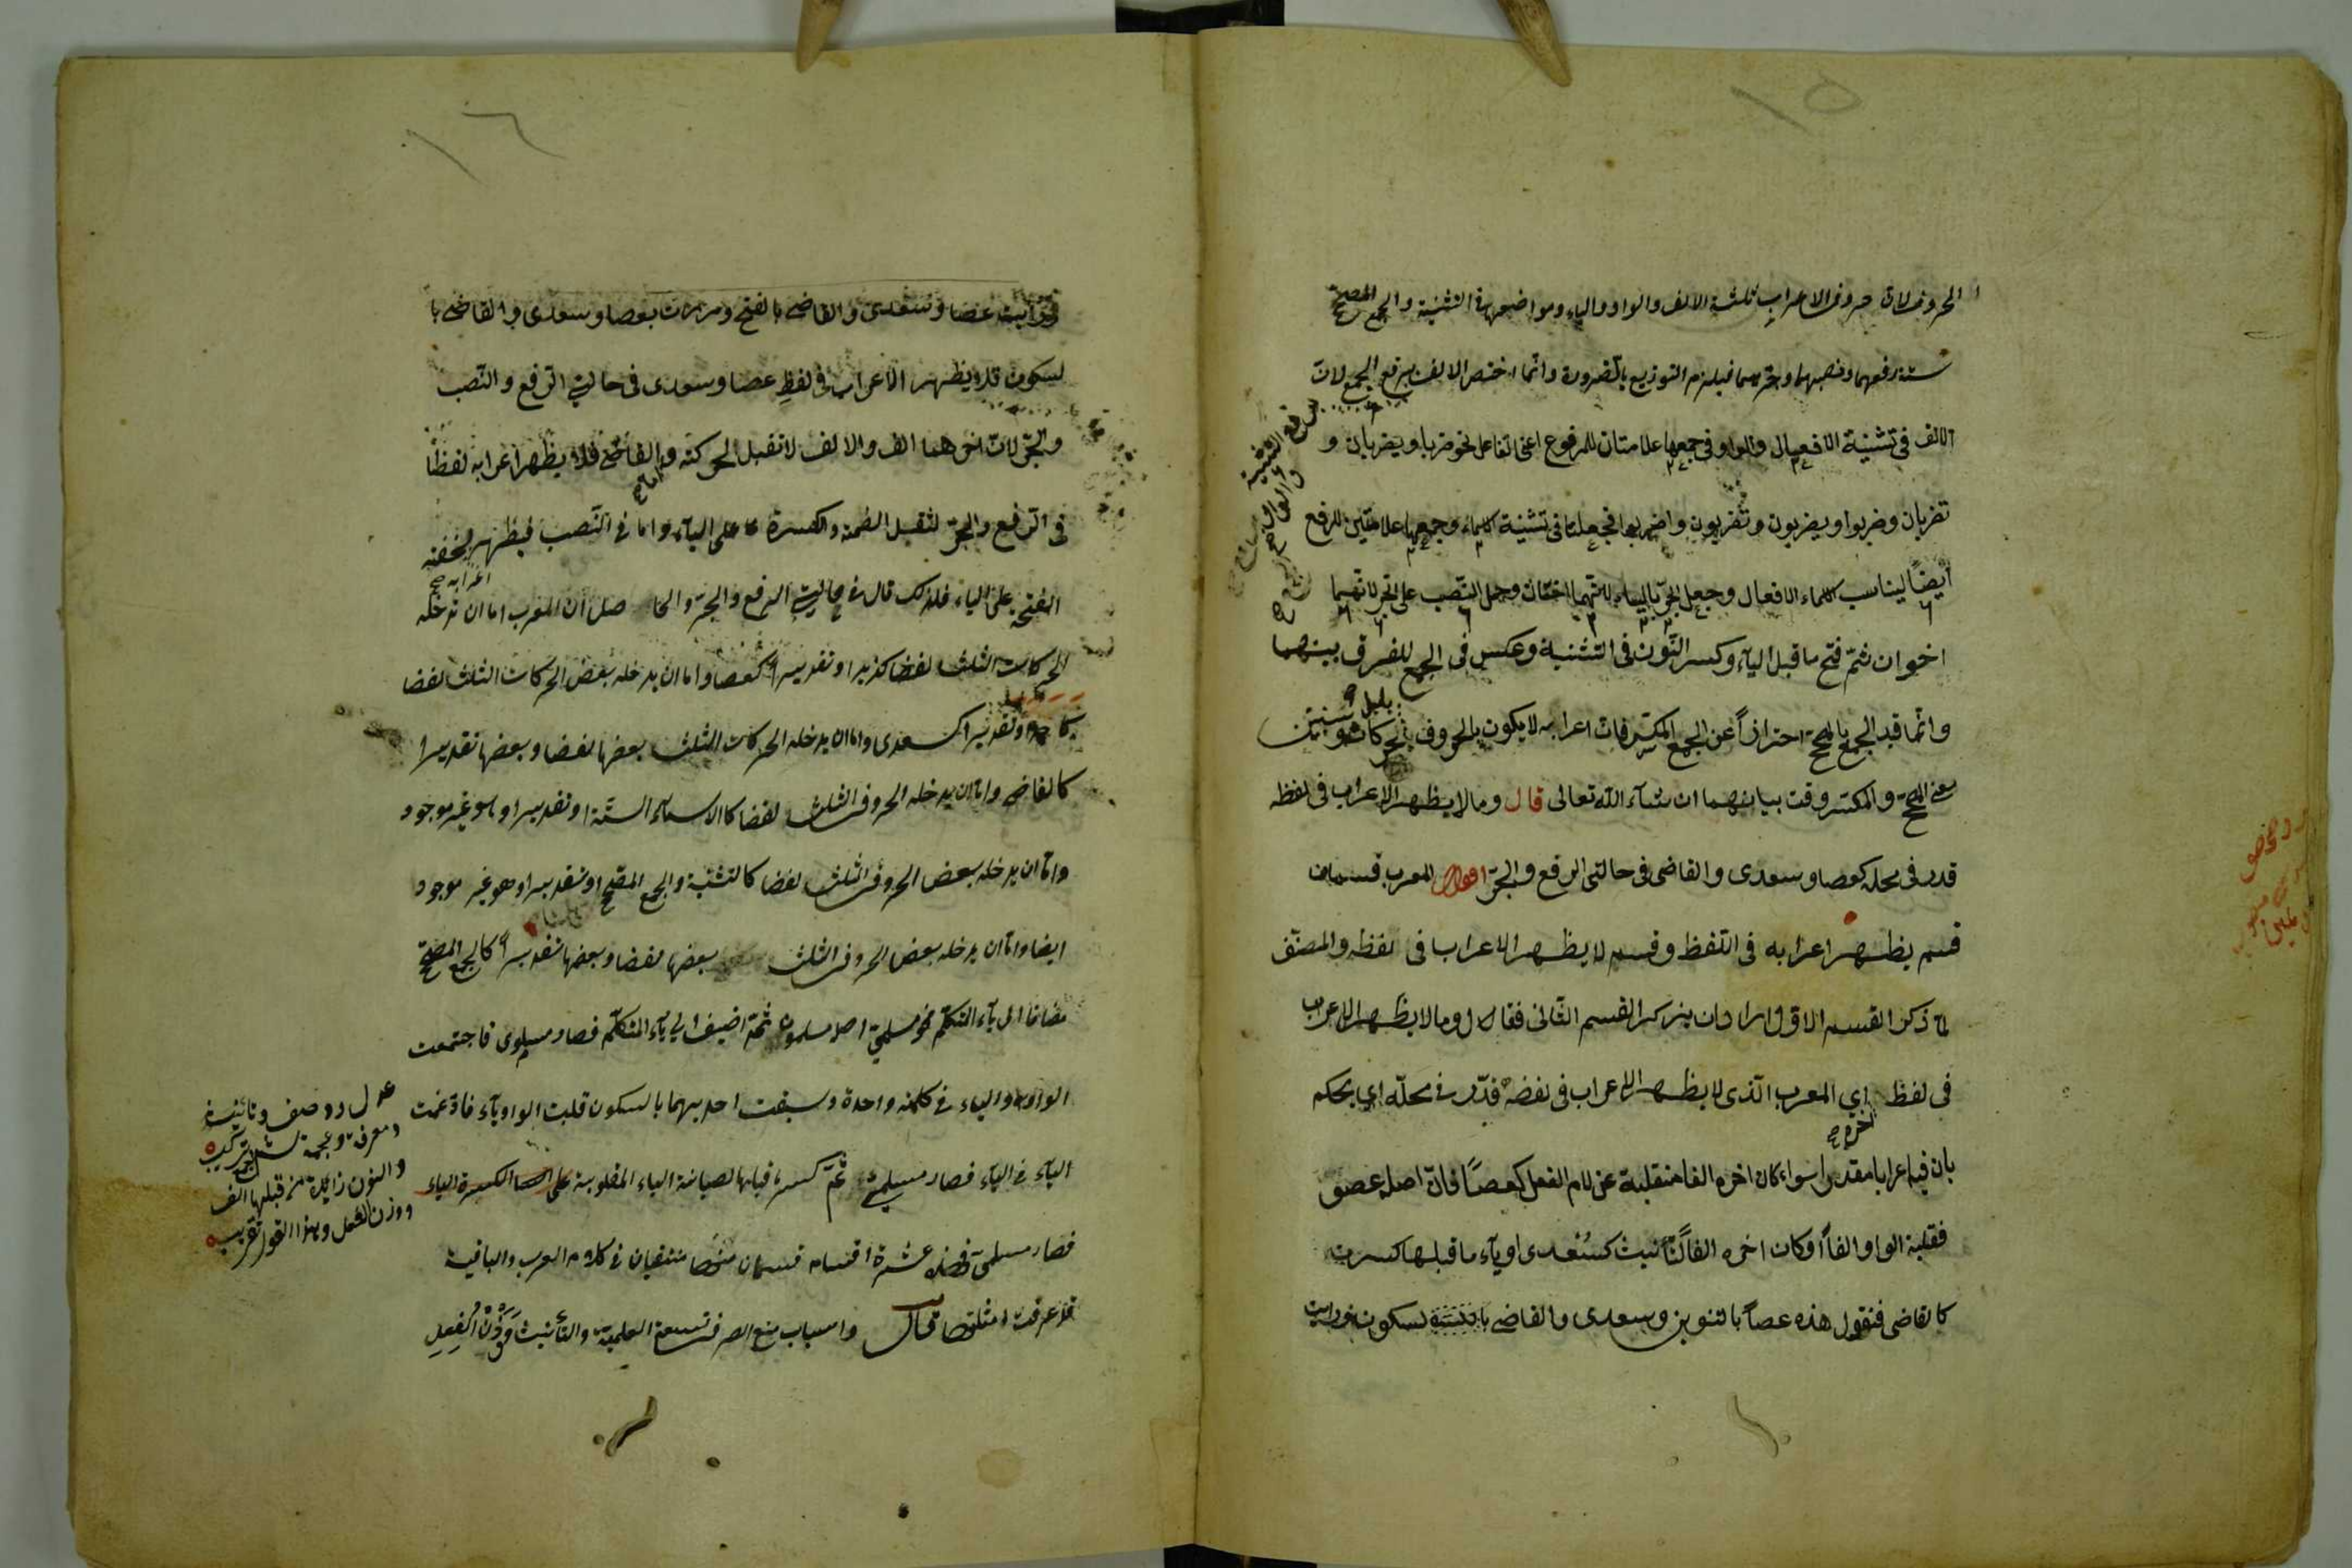 ١٥
الحروف لان حروف الاعراب ثلثة الالف والواو والياء ومواضعها فى التثنية والجمع المصحح
ستة رفعهما ونصبهما وجرهما فيلزم التوزيع بالضرورة وانما اختص الالف برفع الجمع لان
الالف فى تثنية الافعال والواو فى جمعها علامتان للمرفوع اعنى الفاعل نحو ضربا ويضربان و
تضربان وضربوا ويضربون وتضربون واضربوا فجعلتا فى تثنية الاسماء وجمعها علامتين للرفع
ايضاً ليناسب الاسماء الافعال وجعل الجرّ بالياء لانّهما اختان وحمل النّصب على الجرّ لانّهما
اخوان ثمّ فتح ما قبل الياء وكسر النّون فى التثنية وعكس فى الجمع للفرق بينهما
وانّما قيد الجمع بالمصحح احترازاً عن الجمع المكسّر فانّ اعرابه لا يكون بالحروف بل بالحركات وسنبيّن
معنى المصحّح والمكسّر وقت بيانهما ان شاء الله تعالى قال وما لا يظهر الاعراب فى لفظه
قدر فى محله كعصا وسعدى والقاضى فى حالتى الرفع والجرّ اقول المعرب قسمان
قسم يظهر اعرابه فى اللفظ وقسم لا يظهر الاعراب فى لفظه والمصنّف
لمّا ذكر القسم الاوّل اراد ان يذكر القسم الثّانى فقال وما لا يظهر الاعراب
فى لفظ اي المعرب الّذى لا يظهر الاعراب فى لفضه قدّر فى محلّه اى يحكم
بان فى آخره اعرابا مقدرا سواء كان اخره الفا منقلبة عن لام الفعل كعصًا فانّ اصله عصو
فقلبة الواو الفاً او كان اخره الفا لتأنيث كسُعدى او ياء ما قبلها كسرة
كالقاضى فنقول هذه عصاً بالتنوين وسعدى والقاضى بالسكون ورايت
١٦
ورايت عصا وسعدى والقاضى بالفتح ومررت بعصا وسعدى والقاضى با
لسكون فلا يظهر الاعراب فى لفظِ عصا وسعدى فى حالة الرفع والنّصب
والجرّ لانّ اخرهما الف والالف لا تقبل الحركة وامّا القاضى فلا يظهر اعرابه لفظًا
فى الرفع والجرّ لثقل الضمة والكسرة على الياء واما فى النّصب فيظهر اعرابه لخفة
الفتحة على الياء فلذلك قال فى حالتى الرفع والجرّ والحاصل ان المعرب اما ان تدخله
الحركات الثلث لفضا كذيد او تقديرا كعصا واما ان يدخله بعض الحركات الثلث لفضا
كاحمد او تقديرا كسعدى واما ان يدخله الحركات الثلث بعضها لفضا وبعضها تقديرا
كالقاضى وامّا ان يدخله الحروف الثلث لفضا كالاسماء الستّة او تقديرا وهو غير موجود
وامّا ان يدخله بعض الحروف الثلث لفضا كالتثنية والجمع المصحّح او تقديرا وهو غير موجود
ايضا وامّا ان يدخله بعض الحروف الثلث بعضها لفضا وبعضها تقديراً كالجمع المصحّح
مضافا الى ياء المتكلّم نحو مسلمىّ اصله مسلمون ثمّ اضيف الى ياء المتكلّم فصار مسلموى فاجتمعت
الواو والياء فى كلمة واحدة وسبقت احديهما بالسكون قلبت الواو ياء فادغمت
الياء فى الياء فصار مسلمىّ ثمّ كسر ما قبلها لصيانة الياء
فصار مسلمىّ فهذه عشرة اقسام قسمان منها منتفيان فى كلام العرب والباقية
قد عرفت امثلتها قال واسباب منع الصرف تسعة العلمية والتأنيث وَوَزْنُ الْفِعلِ
عدل ووصف وتانيث
ومعرفة وعجمة ثم جمع ثم تركيب
والنون زايدة من قبلها الف
ووزن الفعل وهذا القول تقريب